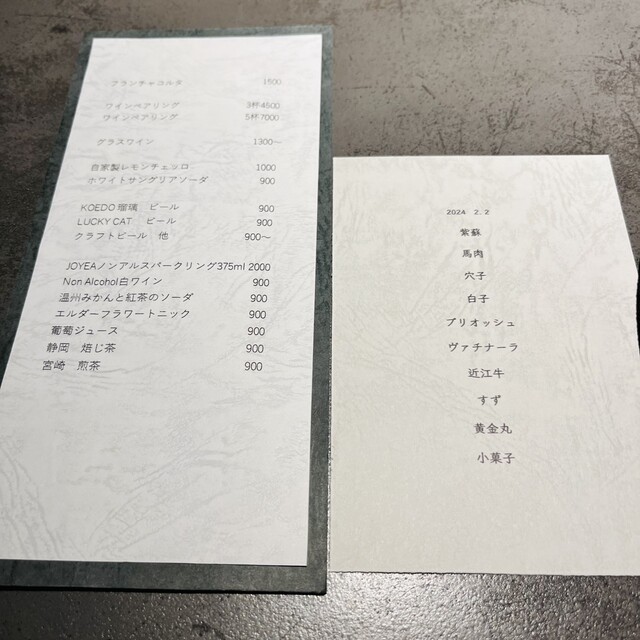 フランチャコルタ 1500
ワインペアリング 3杯4500
ワインペアリング 5杯7000
グラスワイン 1300〜
自家製レモンチェッロ 1000
ホワイトサングリアソーダ 900
KOEDO瑠璃 ビール 900
LUCKY CAT ビール 900
クラフトビール 他 900〜
JOYEAノンアルスパークリング375ml 2000
Non Alcohol白ワイン 900
温州みかんと紅茶のソーダ 900
エルダーフラワートニック 900
葡萄ジュース 900
静岡 焙じ茶 900
宮崎 煎茶 900
2024 2.2
紫蘇
馬肉
穴子
白子
ブリオッシュ
ヴァチナーラ
近江牛
すず
黄金丸
小菓子